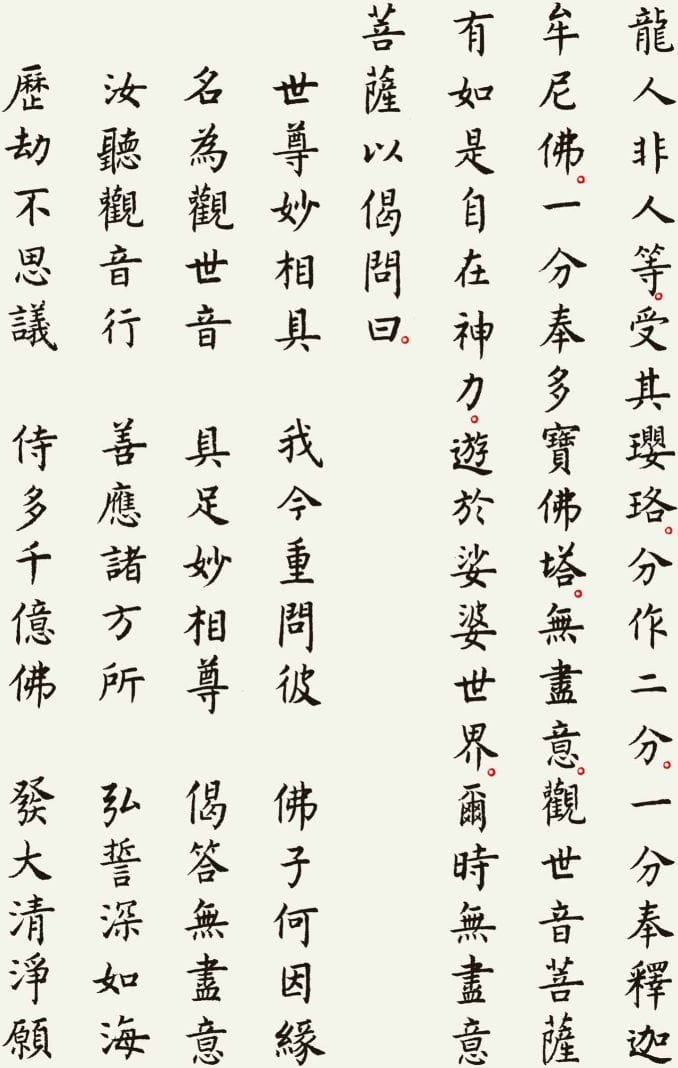 龍人非人等。受其瓔珞。分作二分。一分奉釋迦
牟尼佛。一分奉多寶佛塔。無盡意。觀世音菩薩
有如是自在神力。遊於娑婆世界。爾時無盡意
菩薩以偈問曰。
世尊妙相具 我今重問彼 佛子何因緣
名為觀世音 具足妙相尊 偈答無盡意
汝聽觀音行 善應諸方所 弘誓深如海
歷劫不思議 侍多千億佛 發大清淨願